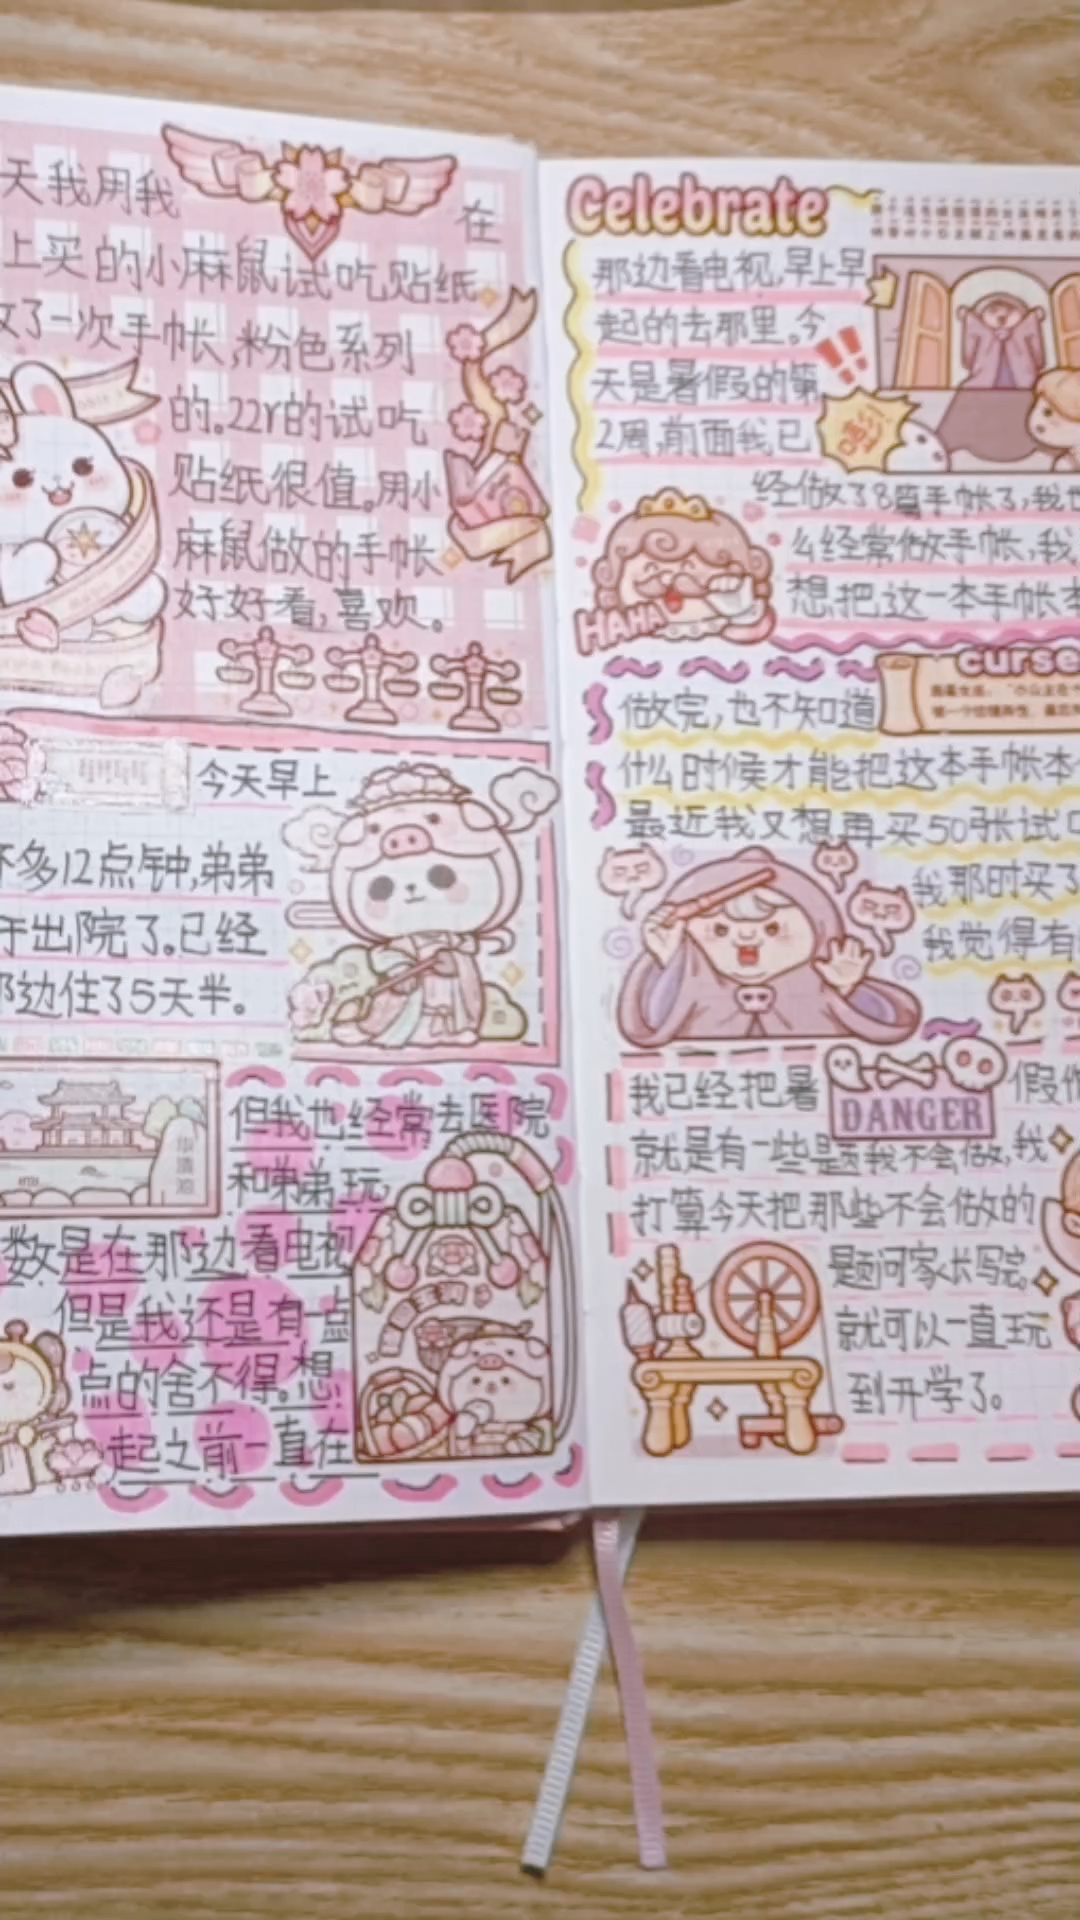 天我用我
在
上买的小麻鼠试吃贴纸
了一次手帐,粉色系列
的。22r的试吃
贴纸很值。用小
麻鼠做的手帐
好好看,喜欢。
今天早上
多12点钟,弟弟
于出院了。已经
那边住了5天半。
但我也经常去医院
和弟弟玩,
数是在那边看电视
但是我还是有一点
点的舍不得。想
起之前一直在
Celebrate
那边看电视,早上早
起的去那里。今
天是暑假的第
2周,前面我已
经做了8篇手帐了,我也
么经常做手帐,我
想把这一本手帐本
HAHA
curse
做完,也不知道
什么时候才能把这本手帐本
最近我又想再买50张试
我那时买了
我觉得有
我已经把暑
DANGER
假作
就是有一些题我不会做,我
打算今天把那些不会做的
题问家长写完。
就可以一直玩
到开学了。